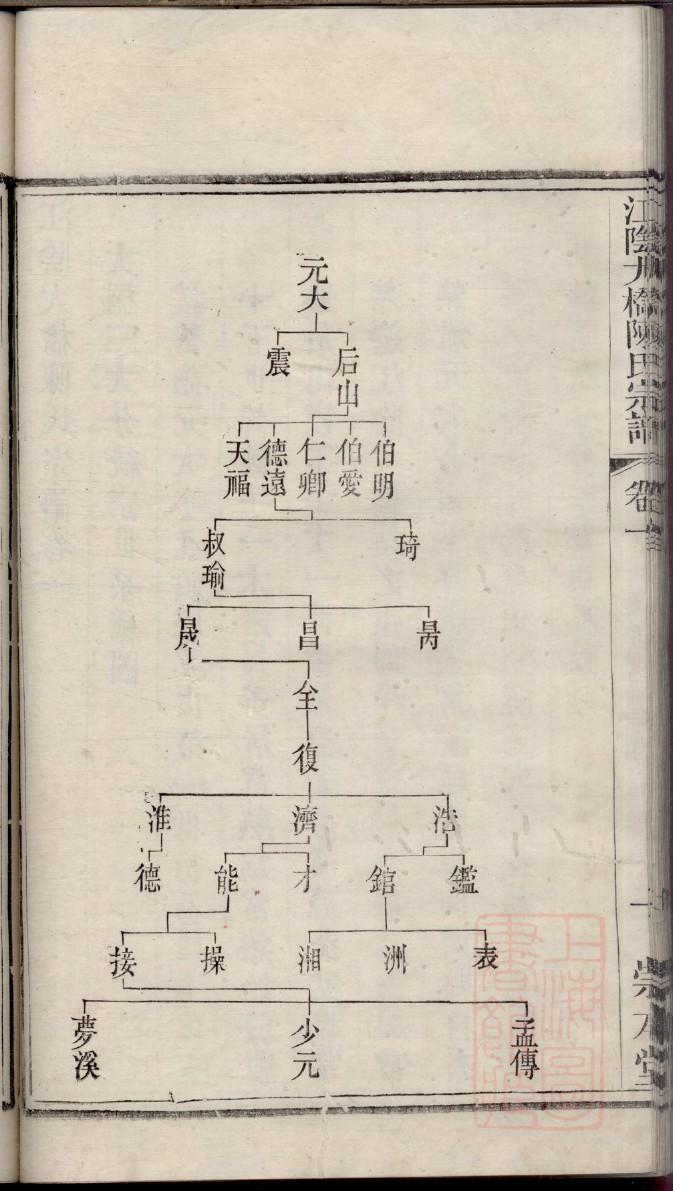 江陰九橋陳氏宗譜
卷一
崇本堂
元大
后山
震
伯明
伯愛
仁卿
德遠
天福
琦
叔瑜
昺
昌
晟
全
復
浩
濟
淮
鑑
錧
才
能
德
表
洲
湘
操
接
孟傳
少元
夢溪